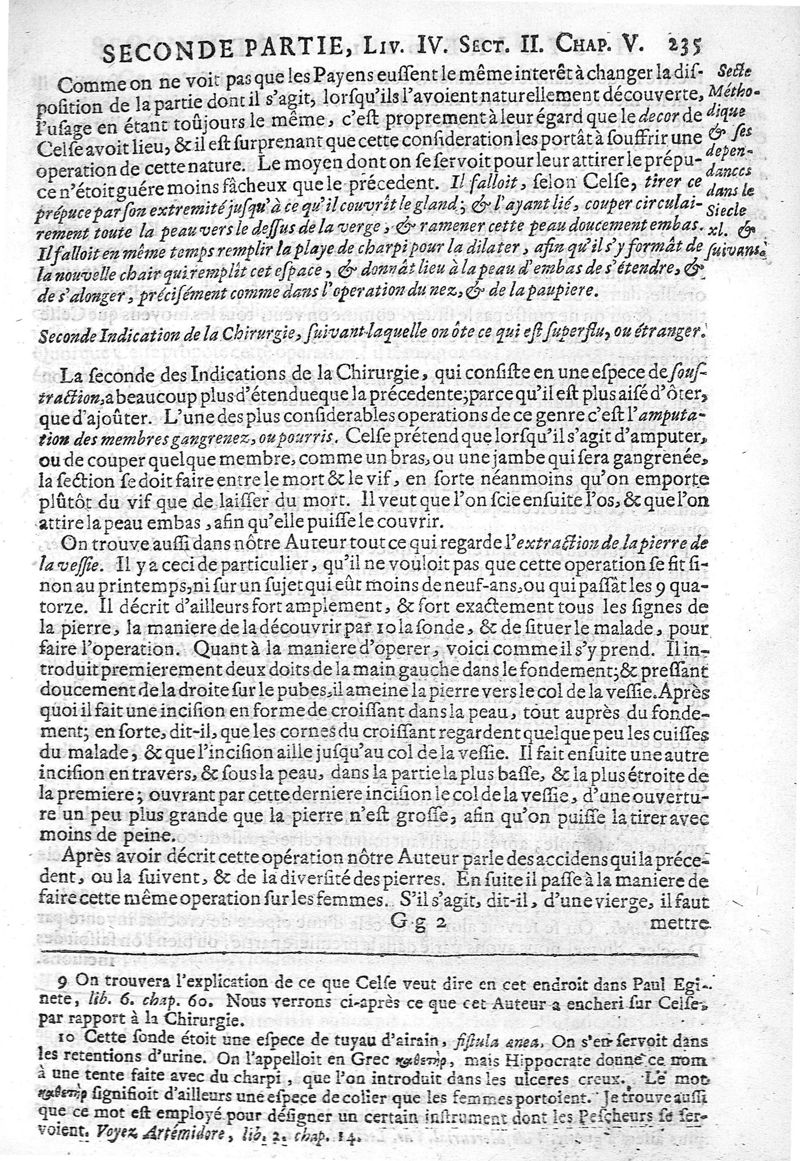 SECONDE PARTIE, Liv. IV. Sect. II. Chap. V. 235
Comme on ne voit pas que les Payens eussent le même interêt à changer la dis-
position de la partie dont il s'agit, lorsqu'ils l'avoient naturellement découverte,
l'usage en étant toûjours le même, c'est proprement à leur égard que le decor de
Celse avoit lieu, & il est surprenant que cette consideration les portât à souffrir une
operation de cette nature. Le moyen dont on se servoit pour leur attirer le prépu-
ce n'étoit guére moins fâcheux que le précedent. Il falloit, selon Celse, tirer ce
prépuce par son extremité jusqu'à ce qu'il couvrît le gland; & l'ayant lié, couper circulai-
rement toute la peau vers le dessus de la verge, & ramener cette peau doucement embas.
Il falloit en même temps remplir la playe de charpi pour la dilater, afin qu'il s'y formât de
la nouvelle chair qui remplît cet espace, & donnât lieu à la peau d'embas de s'étendre, &
de s'alonger, précisément comme dans l'operation du nez, & de la paupiere.
Secte
Métho-
dique
& ses
depen-
dances
dans le
Siecle
xl. &
suivans.
Seconde Indication de la Chirurgie, suivant laquelle on ôte ce qui est superflu, ou étranger.
La seconde des Indications de la Chirurgie, qui consiste en une espece de sous-
traction, a beaucoup plus d'étendue que la précedente; parce qu'il est plus aisé d'ôter,
que d'ajoûter. L'une des plus considerables operations de ce genre c'est l'amputa-
tion des membres gangrenez, ou pourris. Celse prétend que lorsqu'il s'agit d'amputer,
ou de couper quelque membre, comme un bras, ou une jambe qui sera gangrenée,
la section se doit faire entre le mort & le vif, en sorte néanmoins qu'on emporte
plûtôt du vif que de laisser du mort. Il veut que l'on scie ensuite l'os, & que l'on
attire la peau embas, afin qu'elle puisse le couvrir.
On trouve aussi dans nôtre Auteur tout ce qui regarde l'extraction de la pierre de
la vessie. Il y a ceci de particulier, qu'il ne vouloit pas que cette operation se fit si-
non au printemps, ni sur un sujet qui eût moins de neuf-ans, ou qui passât les 9 qua-
torze. Il décrit d'ailleurs fort amplement, & fort exactement tous les signes de
la pierre, la maniere de la découvrir par 10 la sonde, & de situer le malade, pour
faire l'operation. Quant à la maniere d'operer, voici comme il s'y prend. Il in-
troduit premierement deux doits de la main gauche dans le fondement; & pressant
doucement de la droite sur le pubes, il ameine la pierre vers le col de la vessie. Après
quoi il fait une incision en forme de croissant dans la peau, tout auprès du fonde-
ment; en sorte, dit-il, que les cornes du croissant regardent quelque peu les cuisses
du malade, & que l'incision aille jusqu'au col de la vessie. Il fait ensuite une autre
incision en travers, & sous la peau, dans la partie la plus basse, & la plus étroite de
la premiere; ouvrant par cette derniere incision le col de la vessie, d'une ouvertu-
re un peu plus grande que la pierre n'est grosse, afin qu'on puisse la tirer avec
moins de peine.
Après avoir décrit cette opération nôtre Auteur parle des accidens qui la préce-
dent, ou la suivent, & de la diversité des pierres. En suite il passe à la maniere de
faire cette même operation sur les femmes. S'il s'agit, dit-il, d'une vierge, il faut
G g 2 mettre
9 On trouvera l'explication de ce que Celse veut dire en cet endroit dans Paul Egi-
nete, lib. 6. chap. 60. Nous verrons ci-après ce que cet Auteur a encheri sur Celse,
par rapport à la Chirurgie.
10 Cette sonde étoit une espece de tuyau d'airain, fistula ænea. On s'en servoit dans
les retentions d'urine. On l'appelloit en Grec καθετὴρ, mais Hippocrate donne ce nom
à une tente faite avec du charpi, que l'on introduit dans les ulceres creux. Le mot
καθετὴρ signifioit d'ailleurs une espece de colier que les femmes portoient. Je trouve aussi
que ce mot est employé pour désigner un certain instrument dont les Pescheurs se ser-
voient. Voyez Artémidore, lib. 2. chap. 14.